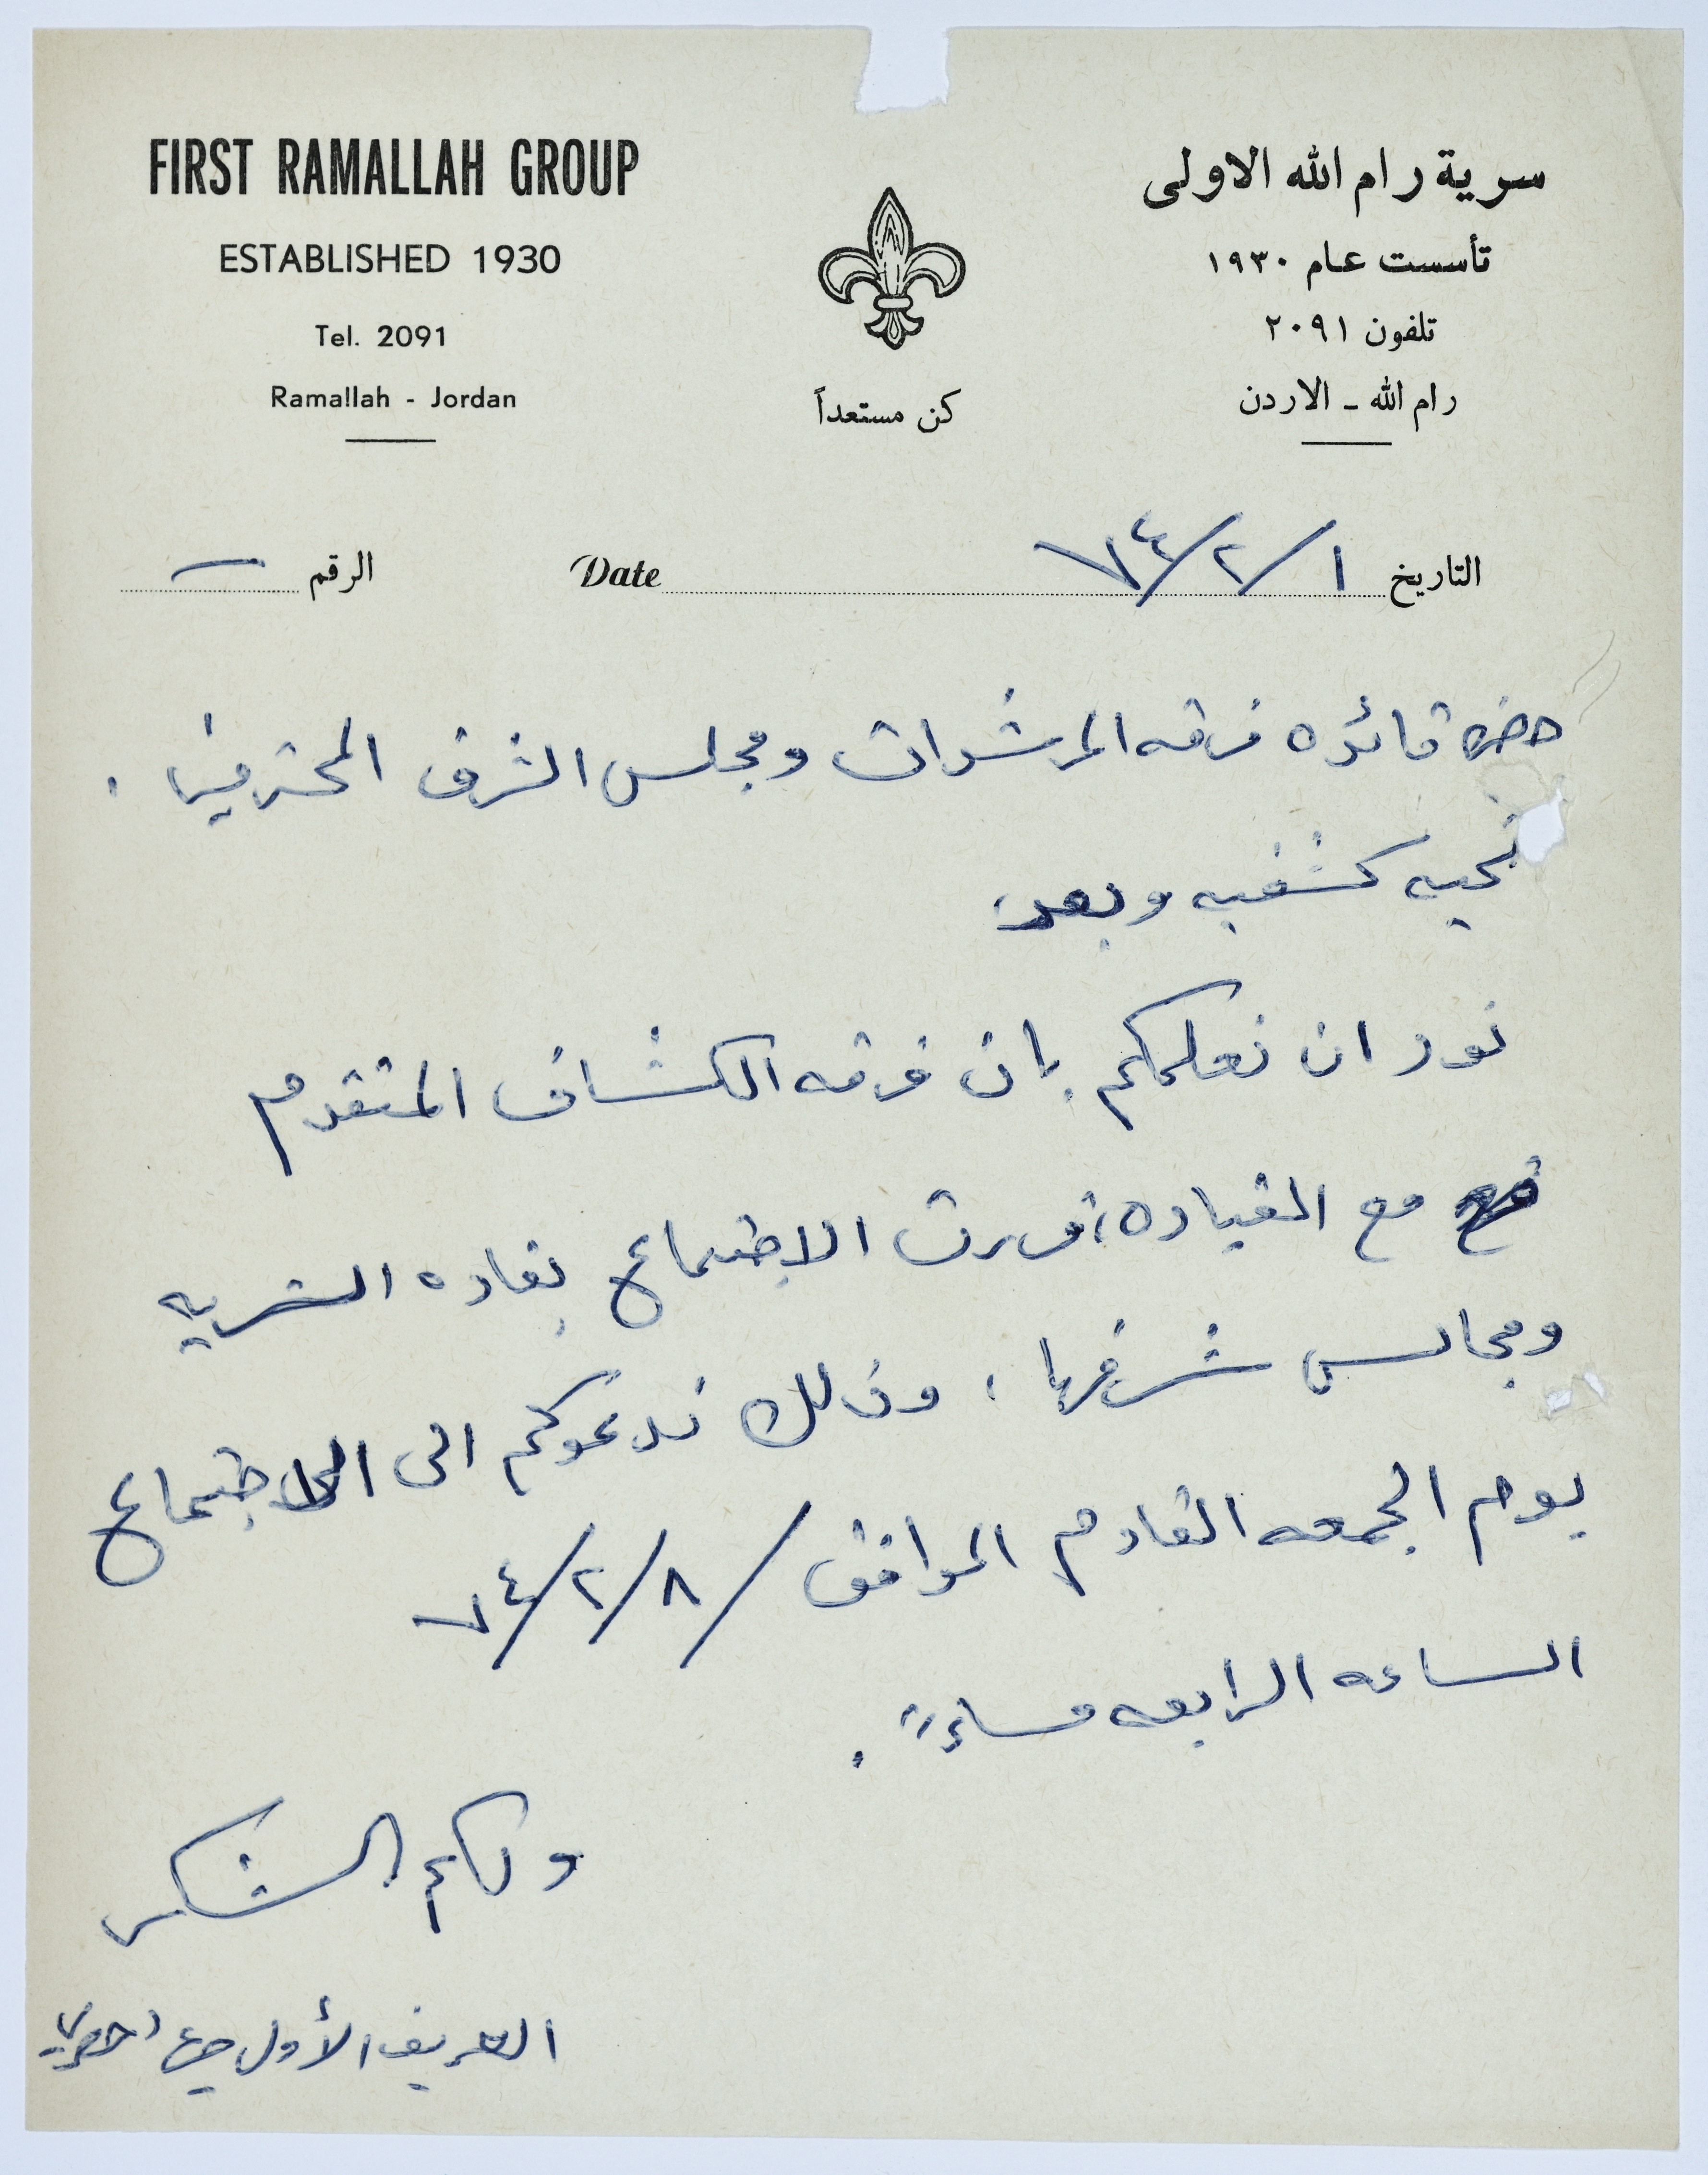 FIRST RAMALLAH GROUP
ESTABLISHED 1930
Tel. 2091
Ramallah - Jordan
كن مستعداً
سرية رام الله الاولى
تأسست عام ١٩٣٠
تلفون ٢٠٩١
رام الله - الاردن
التاريخ ١/٢/٧٤ Date
الرقم —
حضرة قائده فرقه المرشدات ومجلس الشرف المحترمين .
تحيه كشفيه وبعد،
نود ان نعلمكم بان فرقه الكشاف المتقدم
مع القياده، قررت الاجتماع بقاده السريه
ومجالس شرفها ، وذلك ندعوكم الى الاجتماع
يوم الجمعه القادم الموافق ٨/٢/٧٤
الساعه الرابعه مساءً .
ولكم الشكر
العريف الأول